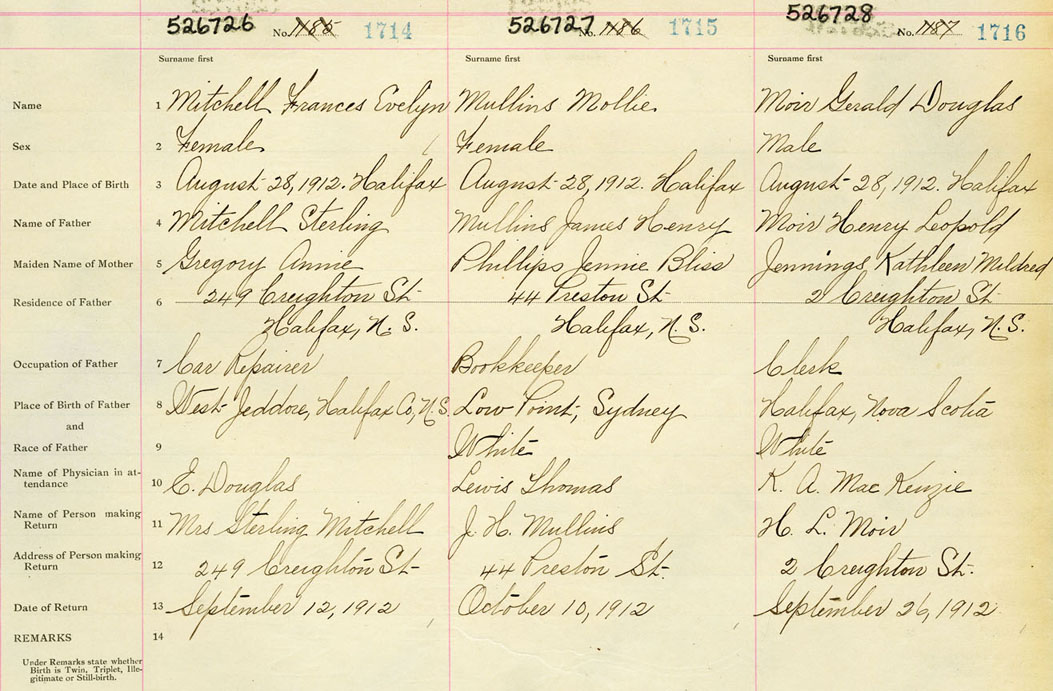 526726 No. 1185 1714 526727 No. 1186 1715 526728 No. 1187 1716
Surname first Surname first Surname first
Name 1 Mitchell Frances Evelyn Mullins Mollie Moir Gerald Douglas
Sex 2 Female Female Male
Date and Place of Birth 3 August 28, 1912. Halifax August 28, 1912. Halifax August 28, 1912. Halifax
Name of Father 4 Mitchell Sterling Mullins James Henry Moir Henry Leopold
Maiden Name of Mother 5 Gregory Annie Phillips Jennie Bliss Jennings Kathleen Mildred
Residence of Father 6 249 Creighton St. 44 Preston St. 2 Creighton St.
Halifax, N. S. Halifax, N. S. Halifax, N. S.
Occupation of Father 7 Car Repairer Bookkeeper Clerk
Place of Birth of Father 8 West Jeddore, Halifax Co, N.S. Low Point, Sydney Halifax, Nova Scotia
and
Race of Father 9 White White
Name of Physician in at-
tendance 10 E. Douglas Lewis Thomas K. A. MacKenzie
Name of Person making
Return 11 Mrs Sterling Mitchell J. H. Mullins H. L. Moir
Address of Person making
Return 12 249 Creighton St. 44 Preston St. 2 Creighton St.
Date of Return 13 September 12, 1912 October 10, 1912 September 26, 1912
REMARKS 14
Under Remarks state whether
Birth is Twin, Triplet, Ille-
gitimate or Still-birth.